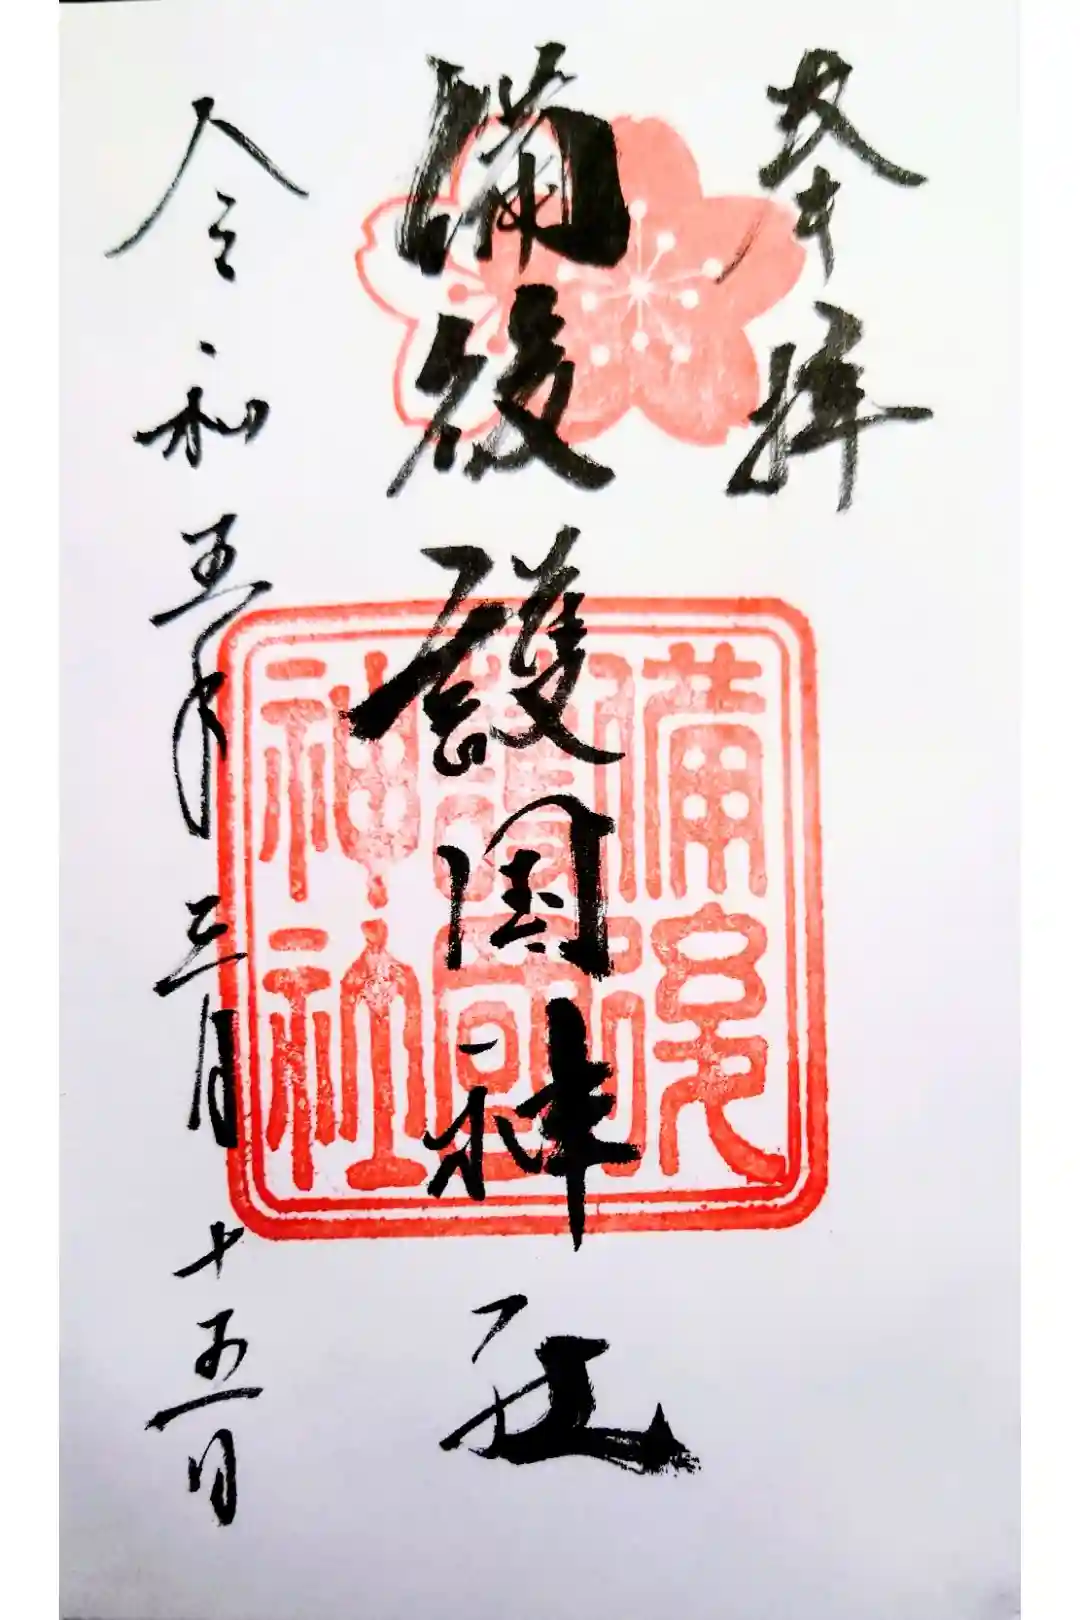 奉拝
備後護国神社
備後
護国
神社
令和五年三月十五日